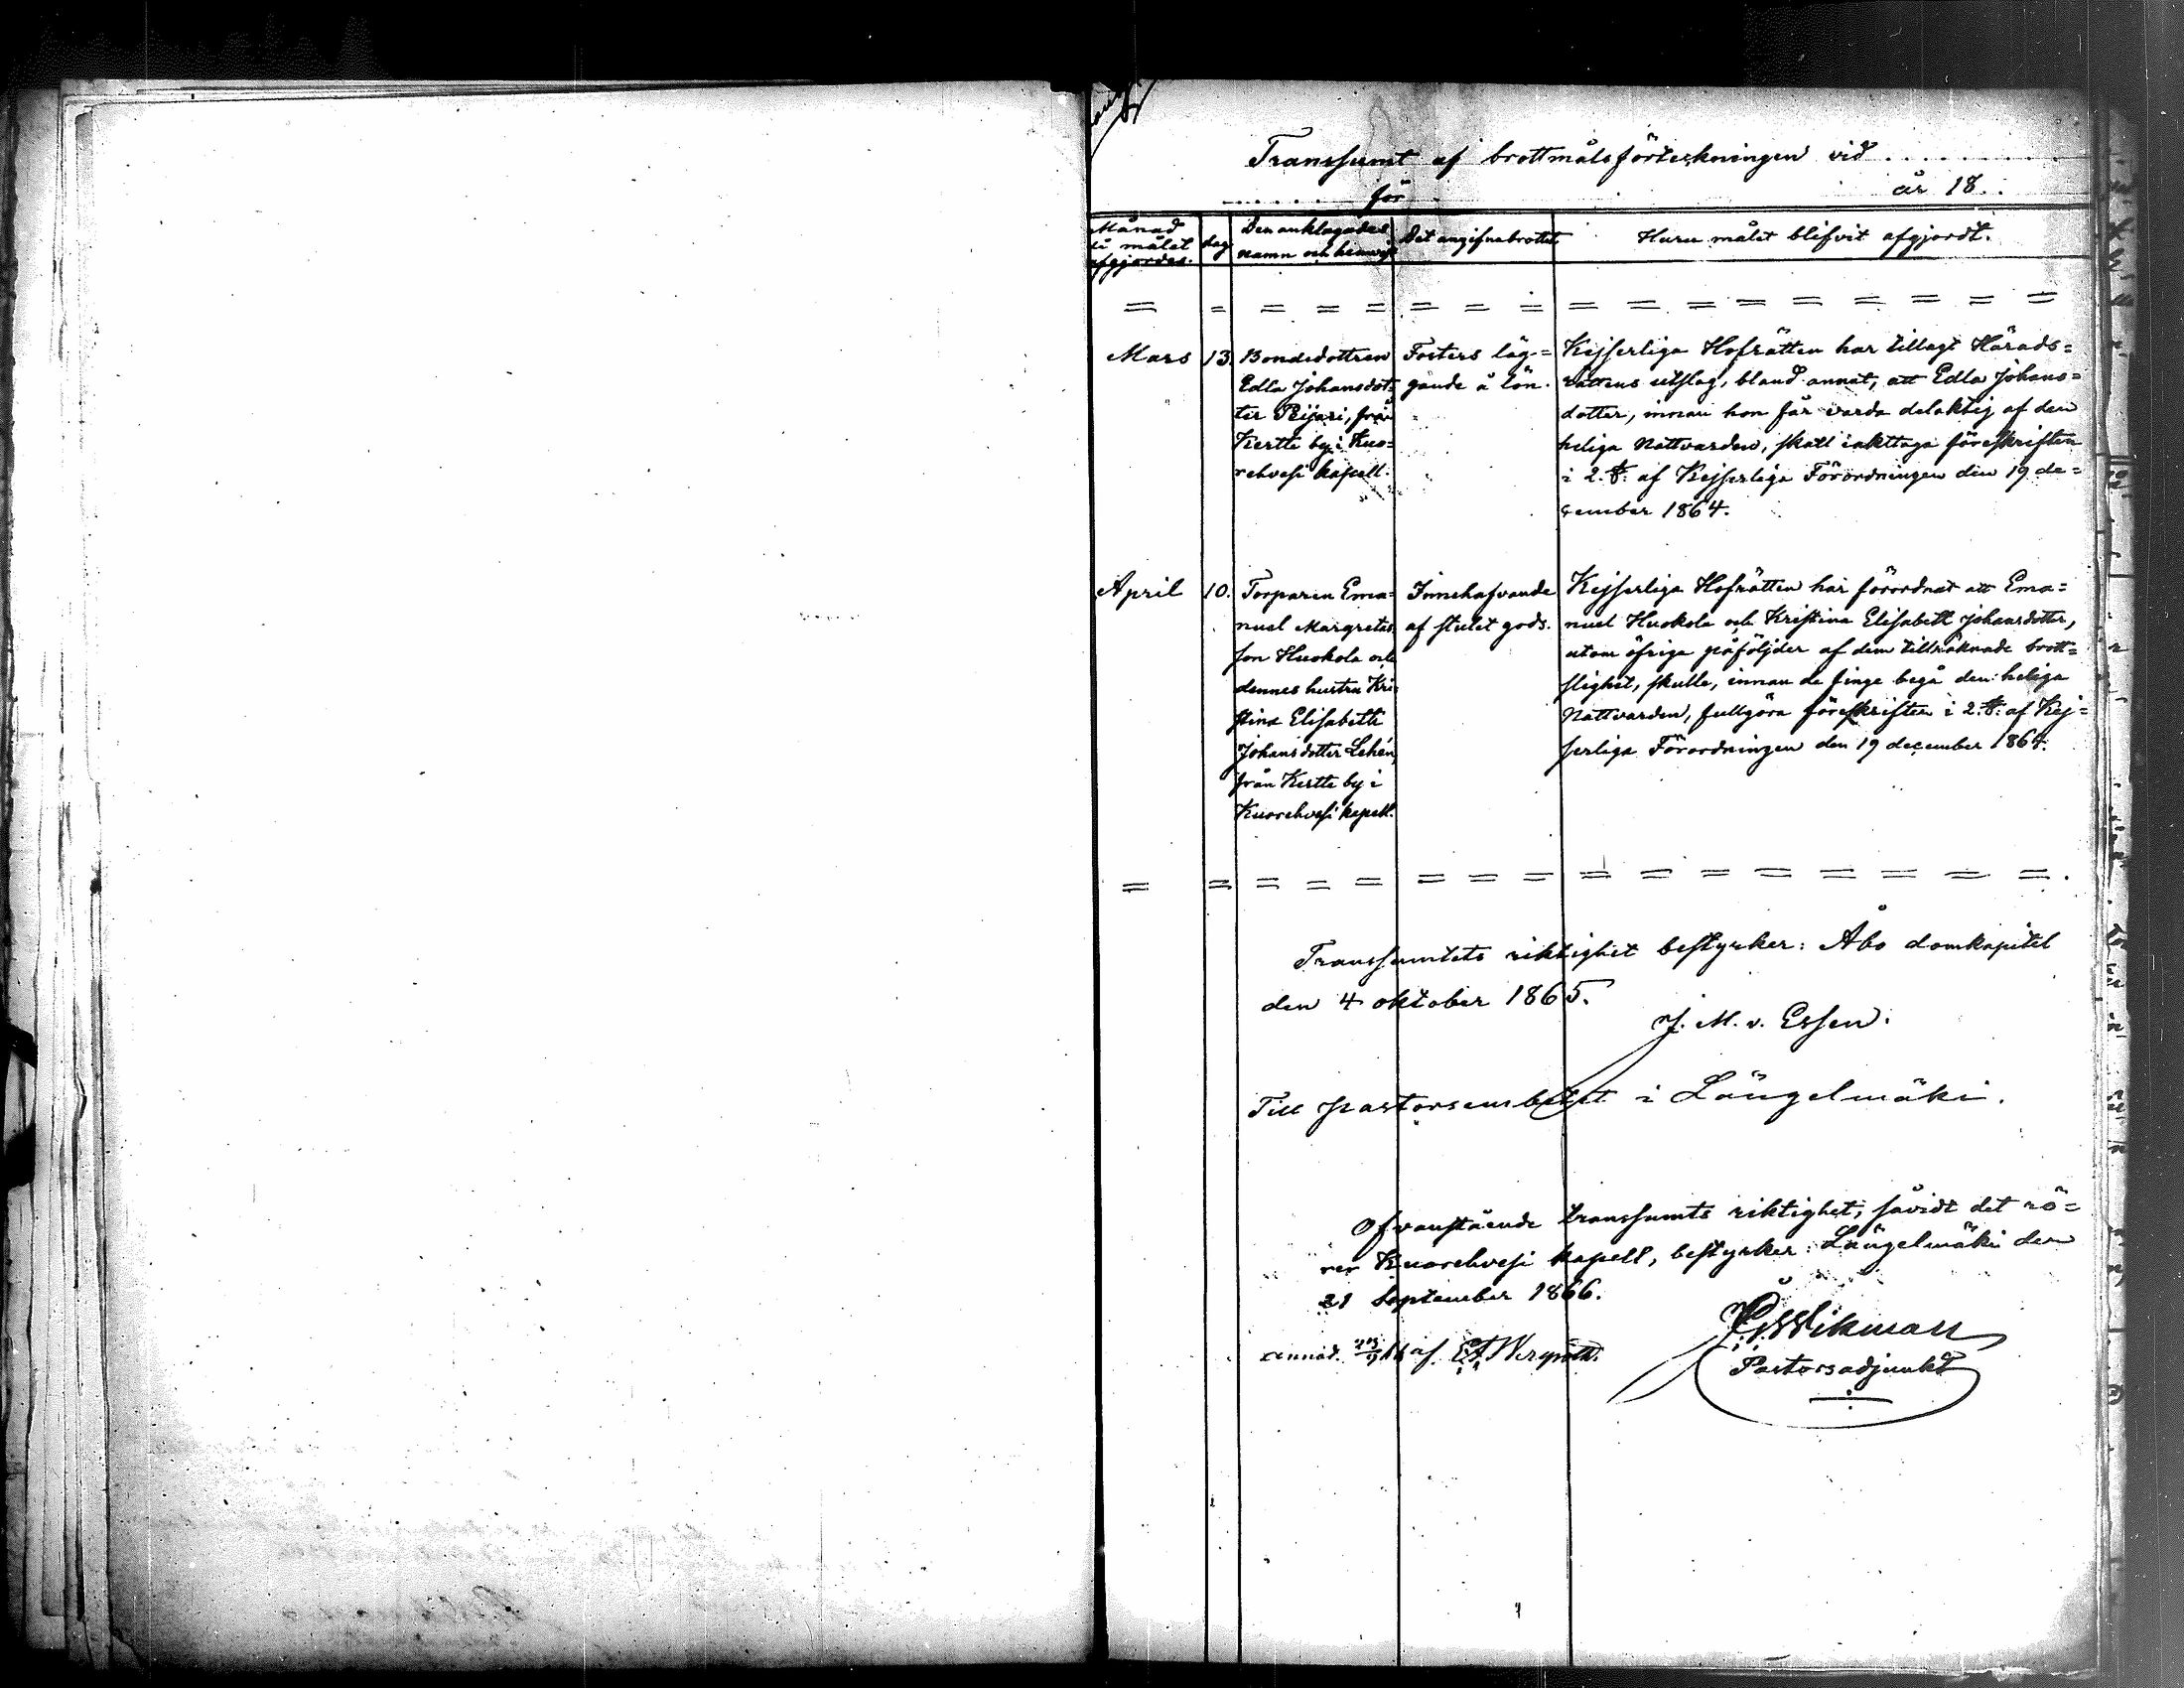 Transsumt af brottmålsförteckningen vid . . . . . . . .
. . . . . . för . år 18. .
Månad
då målet
afgjordes.
dag
Den anklagades
namn och hemvist
Det angifna brottet
Huru målet blifvit afgjordt.
= = = = = = = = = = = = = = = = =
Mars
13.
Bondedottren
Edla Johansdot-
ter Peijari, från
Kertte by i Kuo-
rehvesi kapell.
Fosters läg-=
gande å lön.
Kejserliga Hofrätten har tillagt Härads=
rättens utslag, bland annat, att Edla Johans=
dotter, innan hon får varda delaktig af den
heliga Nattvarden, skall iakttaga föreskriften
i 2. §. af Kejserliga Förordningen den 19 de=
cember 1864.
April
10.
Torparen Ema=
nuel Margretas
son Huokola och
dennes hustru Kri-
stina Elisabeth
Johansdotter Lehén,
från Kertte by i
Kuorehvesi kapell.
Innehafvande
af stulet gods.
Kejserliga Hofrätten har förordnat att Ema=
nuel Huokola och Kristina Elisabeth Johansdotter,
utom öfriga påföljder af dem tillräknade brott=
slighet, skulle, innan de finge begå den heliga
Nattvarden, fullgöra föreskriften i 2. §. af Kej=
serliga Förordningen den 19 december 1864.
= = = = = = = = = = = = = = = = .
Transsumtets riktighet bestyrker: Åbo domkapitel
den 4 oktober 1865.
J. M. v. Essen.
Till pastorsembetet i Längelmäki.
Ofvanstående transsumts riktighet, såvidt det rö=
rer Kuorehvesi kapell, bestyrker: Längelmäki den
21 September 1866.
Wikman
Pastorsadjunkt
af